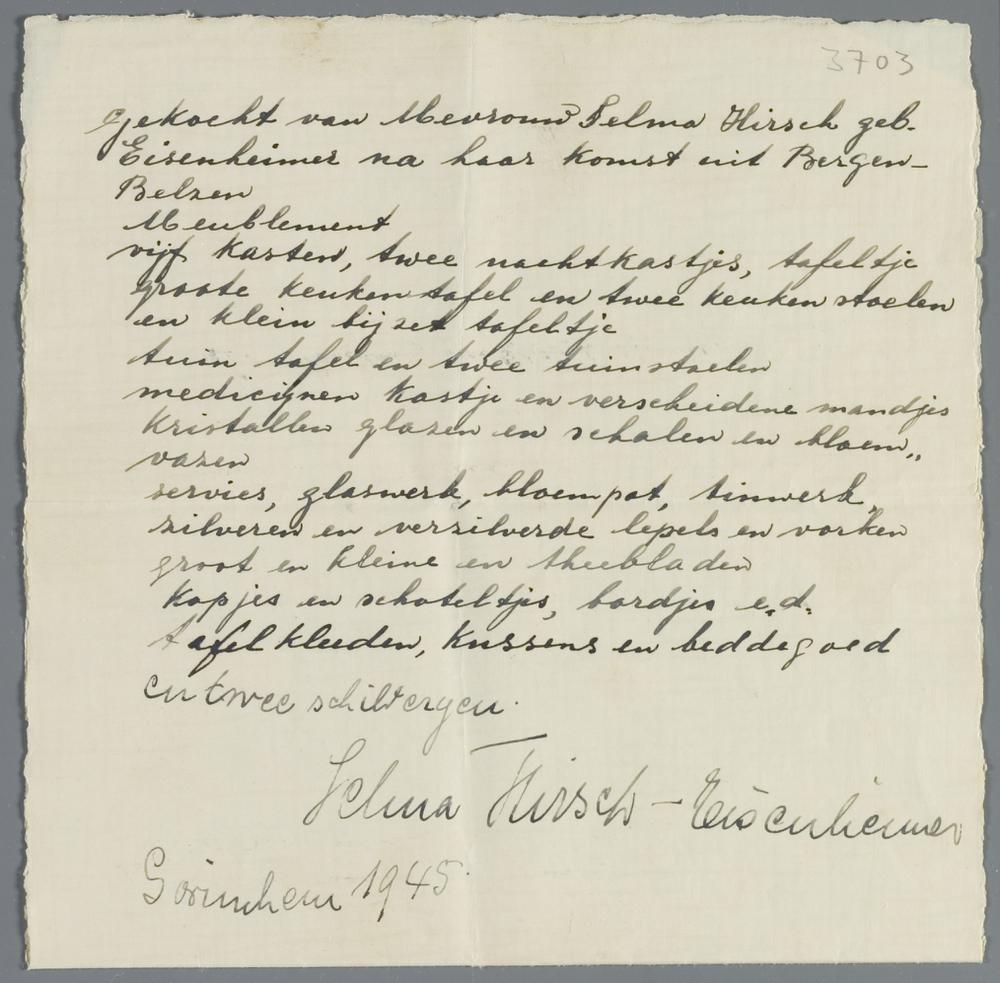 3703
gekocht van Mevrouw Selma Hirsch geb.
Eisenheimer na haar komst uit Bergen-
Belzen
Meublement
vijf kasten, twee nachtkastjes, tafeltje
groote keukentafel en twee keukenstoelen
en klein bijzet tafeltje
tuin tafel en twee tuinstoelen
medicijnen kastje en verscheidene mandjes
kristallen glazen en schalen en bloem„
vazen
servies, glaswerk, bloempot, tinwerk,
zilveren en verzilverde lepels en vorken
groot en kleine en theebladen
kopjes en schoteltjes, bordjes e.d.
tafelkleeden, kussens en beddegoed
en twee schilderyen.
Selma Hirsch - Eisenheimer
Gorinchem 1945.